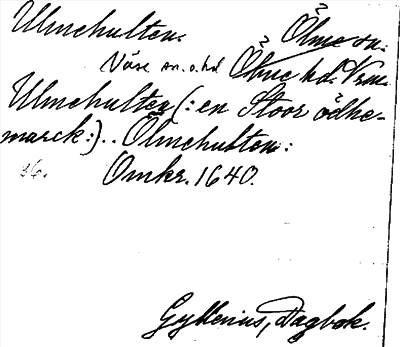 Ulmehulten. Ölme sn.
Väse sn. o. hd Ölme hd. Vrm.
Ulmehulten (: en Stoor ödhe-
marck :) .. Ölmehulten:
36. Omkr. 1640.
Gyllenius, Dagbok.